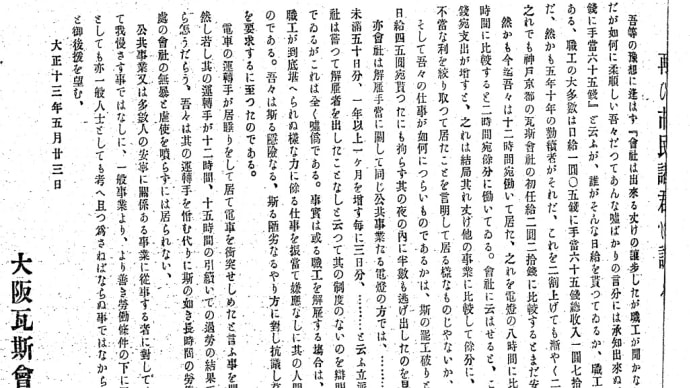 再び市民諸君に訴ふ
吾等の豫想に違はず『會社は出來る丈けの讓步したが職工が聞かな
だが如何に柔順しい吾々だつてあんな噓ばかりの言分には承知出來ぬ
錢に手當六十五錢』と云ふが、誰がそんな日給を貰つてゐるか、職
ある、職工の大多數は日給一圓〇五錢に手當六十五錢總收入一圓七拾
だ、然かも五年十年の勤續者がそれだ、これを二割上げても漸やく二
之れでも神戸京都の瓦斯會社の初任給二圓二拾錢に比較するとまだ安
然かも今迄吾々は十二時間宛働いて居た、之れを電燈の八時間に比
時間に比較すると二時間宛餘分に働いてゐる。會社に云はせると、こ
錢宛支出が增すと、之れは結局其れ丈け他の事業に比較して餘分に、
不當な利を絞り取つて居たことを言明して居る樣なものじやないか、
そして吾々の仕事が如何につらいものであるかは、斯の罷工破りと
日給四五圓宛貰つたにも拘らず其の夜の內に半數も逃げ出したのを見
亦會社は解雇手當に關して同じ公共事業たる電燈の方では、……
未滿五十日分、一年以上一ヶ月を增す每に三日分、………と云ふ立派
社は嘗つて解雇者を出したことなしと云つて其の制度のないのを辯明
でゐるがこれは全く噓僞である。事實は或る職工を解雇する塲合は、
職工が到底堪へられぬ樣な力に餘る仕事を振當て嫌應なしに其の人間
のである。吾々は斯る陰險なる、斯る陋劣なるやり方に對し抗議し
を要求するに至つたのである。
電車の運轉手が居眠りをして居て電車を衝突せしめたと言ふ事を
然し若し其の運轉手が十二時間、十五時間の引續いての過勞の結果
ら怎うだらう、吾々は其の運轉手を憎む代りに斯の如き長時間の勞
處の會社の無暴と虐使を憤らずには居られない、
公共事業又は多數人の安寧に關係ある事業に從事する者に對して
て我慢さす事ではなしに、一般事業より、より善き勞働條件の下に
としても亦一般人士としても考へ且つ爲さねばならぬ事ではなから
と御後援を望む、
大正十三年五月廿三日
大阪瓦斯會